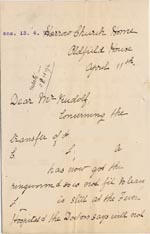 ans. 13. 4. Harrow Church Home
Oldfield House
April 11th
Dear Mr Rudolf
Concerning the
transfer of
S S a
has now got the
ringworm & so is not fit to leave
S is still at the Fever
Hospital & the Doctor says will not